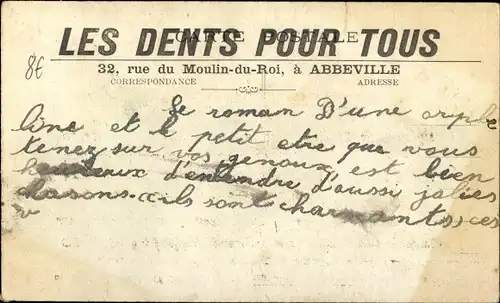 CARTE POSTALE
LES DENTS POUR TOUS
8€
32, rue du Moulin-du-Roi, à ABBEVILLE
CORRESPONDANCE ADRESSE
Le roman D'une orphe
line et le petit etre que vous
tenez sur vos genoux est bien
heureux d'entendre d'aussi jolies
chasons ils sont charmants ces
v